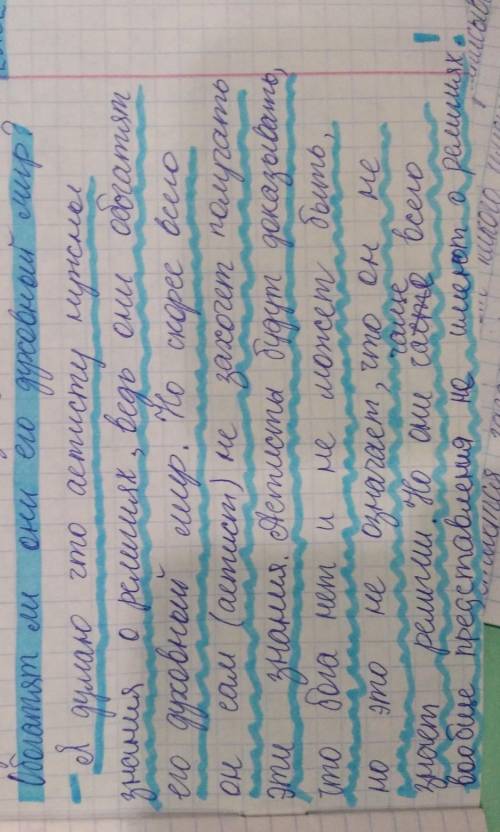 Обогатят ли они его духовный мир?
- Я думаю что аетисту нужны
знания о религиях, ведь они обогатят
его духовный мир. Но скорее всего
он сам (аетист) не захочит получать
эти знания. Аетисты будут доказывать,
что бога нет и не может быть,
но это не означает, что он не
знает религии. Но они чаще всего
вообще представления не имеют о религиях.